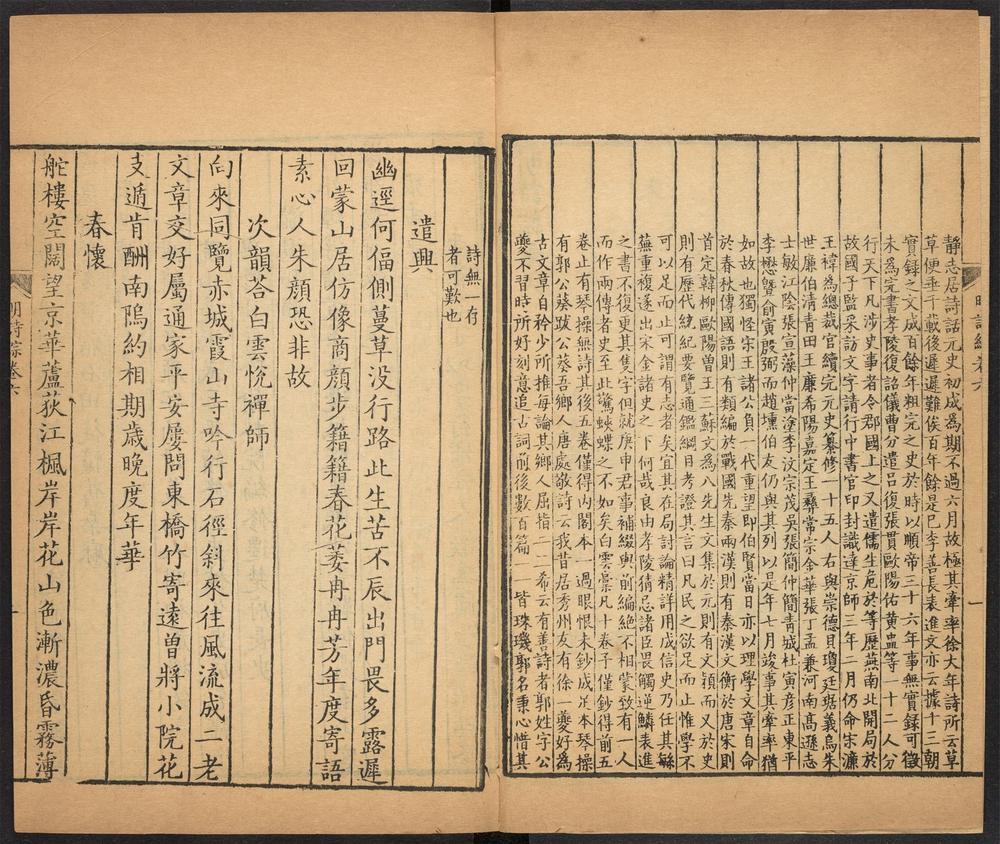 靜志居詩話元史初成為期不過六月故極其牽率徐大年詩所云草
草便垂千載後遲遲難俟百年餘是已李善長表進文亦云據十三朝
實録之文成百餘年粗完之史於時以順帝三十六年事無實録可徵
未為完書孝陵復詔儀曹分遣吕復張貫歐陽佑黄盅等一十二人分
行天下凡涉史事者令郡國上之又遣儒生危於等歷燕南北開局於
故國子監采訪文字請行中書官印封識達京師三年二月仍命宋濂
王褘為總裁官續完元史纂修一十五人右與崇德貝瓊廷琚義烏朱
世廉伯清青田王廉希陽嘉定王彝常宗金華張丁孟兼河南高遜志
士敏江陰張宣藻仲當塗李汶宗茂吳張簡仲簡青城杜寅彦正東平
李懋暨俞寅殷弼而趙壎伯友仍與其列以是年七月竣事其牽率猶
如故也獨怪宋王諸公負一代重望即伯賢當日亦以理學文章自命
於春秋傳國語則有類編於戰國先秦兩漢則有秦漢文衡於唐宋則
首定韓柳歐陽曽王三蘇文為八先生文集於元則有文穎而又於史
則有歷代統紀要覽通鑑綱目考證其言曰凡民之欲足而止惟學不
可以足而止可謂有志者矣宜其在局討論精詳用成信史乃任其蘇
蕪重複遂出宋金諸史之下何哉良由孝陵猜忌諸臣畏觸逆鱗表進
之書不復更其隻字但就庚申君事補綴與前編絶不相蒙致有一人
而作兩傳者史至此驚蛺蝶之不如矣白雲藁凡十卷子僅鈔得前五
卷止有琴操無詩其後五卷僅得内閣本一過眼恨未鈔成足本琴操
有郭公葵跋公葵吾鄉人唐處敬詩云我昔居秀州友有徐一夔好為
古文章自矜少所推每論其鄉人屈指一二希云有善詩者郭姓字公
夔不習時所好刻意追古詞前後數百篇一一皆珠璣郭名秉心惜其
明詩綜卷六
一
詩無一存
者可歎也
遣興
幽逕何偪側蔓草没行路此生苦不辰出門畏多露遲
回蒙山居仿像商顔步籍籍春花萎冉冉芳年度寄語
素心人朱顔恐非故
次韻荅白雲悦禪師
向來同覽赤城霞山寺吟行石徑斜來往風流成二老
文章交好屬通家平安屢問東橋竹寄遠曽將小院花
支遁肯酬南隖約相期歲晚度年華
春懷
舵樓空闊望京華蘆荻江楓岸岸花山色漸濃昏霧薄